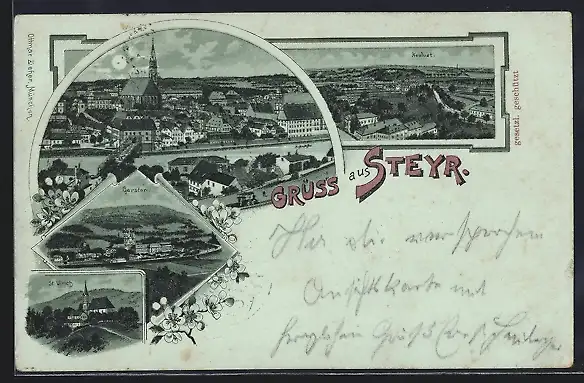 Ottmar Zieher, München.
Neulust.
gesetzl. geschützt
GRUSS aus STEYR.
Garsten.
St. Ulrich.
Hier die versprochene
Ansichtskarte mit
herzlichem Gruß